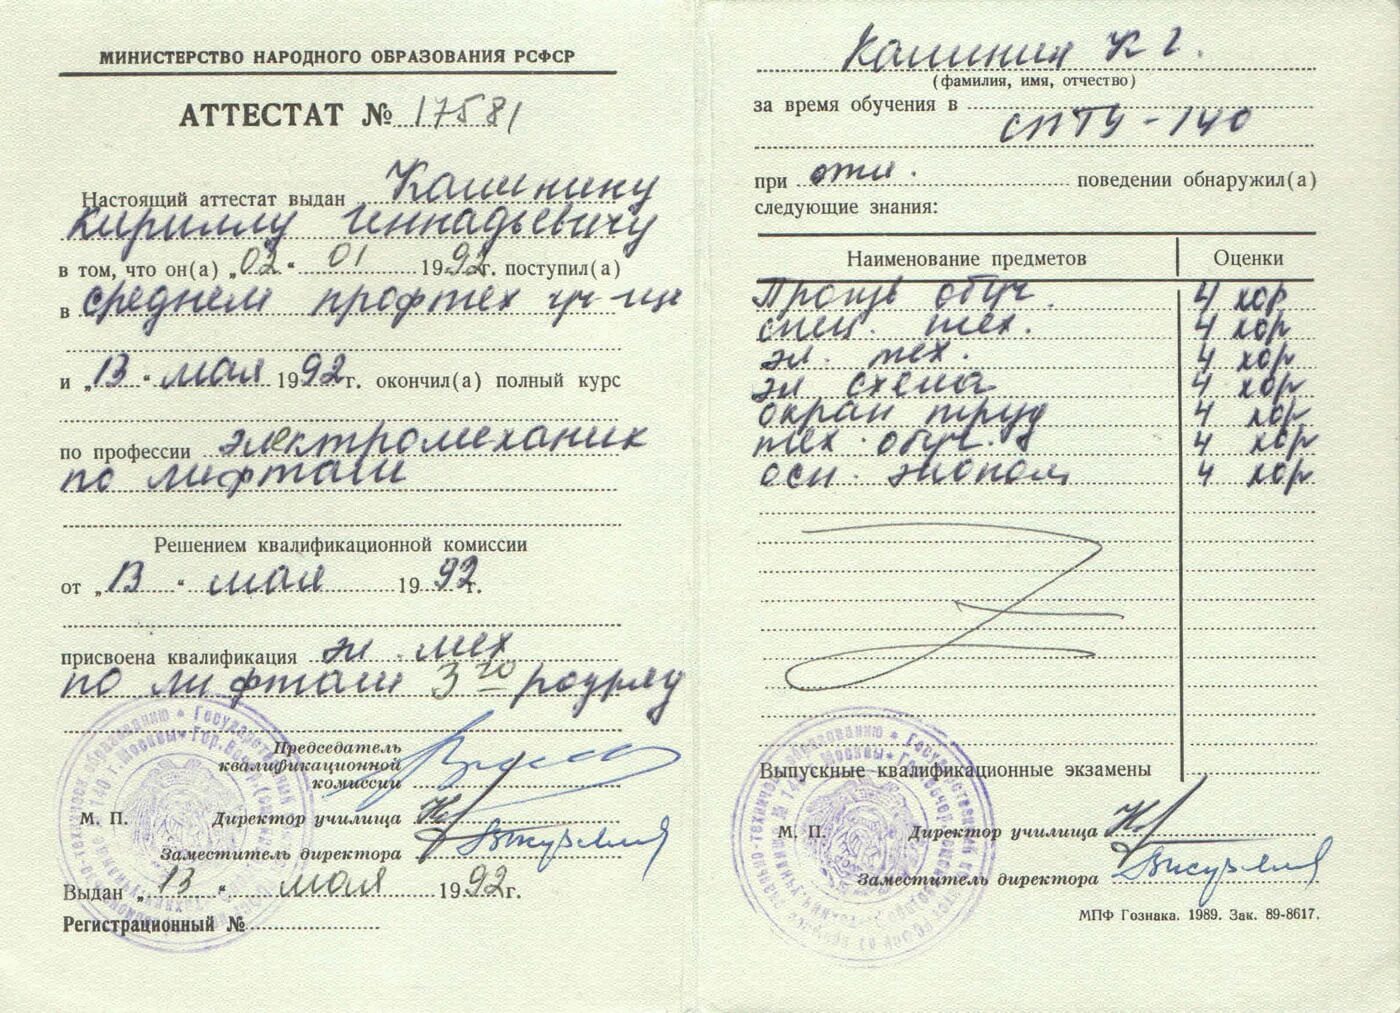 МИНИСТЕРСТВО НАРОДНОГО ОБРАЗОВАНИЯ РСФСР
АТТЕСТАТ № 17581
Настоящий аттестат выдан Калинину
Кириллу Геннадьевичу
в том, что он(а) „02“ 01 1992г. поступил(а)
в среднем профтех уч-ще
и „13“ мая 1992г. окончил(а) полный курс
по профессии электромеханик
по лифтам
Решением квалификационной комиссии
от „13“ мая 1992г.
присвоена квалификация эл. мех
по лифтам 3го разряд
Председатель
квалификационной
комиссии
М. П. Директор училища
Заместитель директора
Выдан „13“ мая 1992г.
Регистрационный №
Калинин К Г.
(фамилия, имя, отчество)
за время обучения в
СПТУ-140
при отл. поведении обнаружил(а)
следующие знания:
Наименование предметов Оценки
Произв обуч. 4 хор
спец. тех. 4 хор
эл. тех. 4 хор
эл схема 4 хор
охран труд 4 хор
тех. обуч. 4 хор
осн. эконом 4 хор
Выпускные квалификационные экзамены
М. П. Директор училища
Заместитель директора
МПФ Гознака. 1989. Зак. 89-8617.